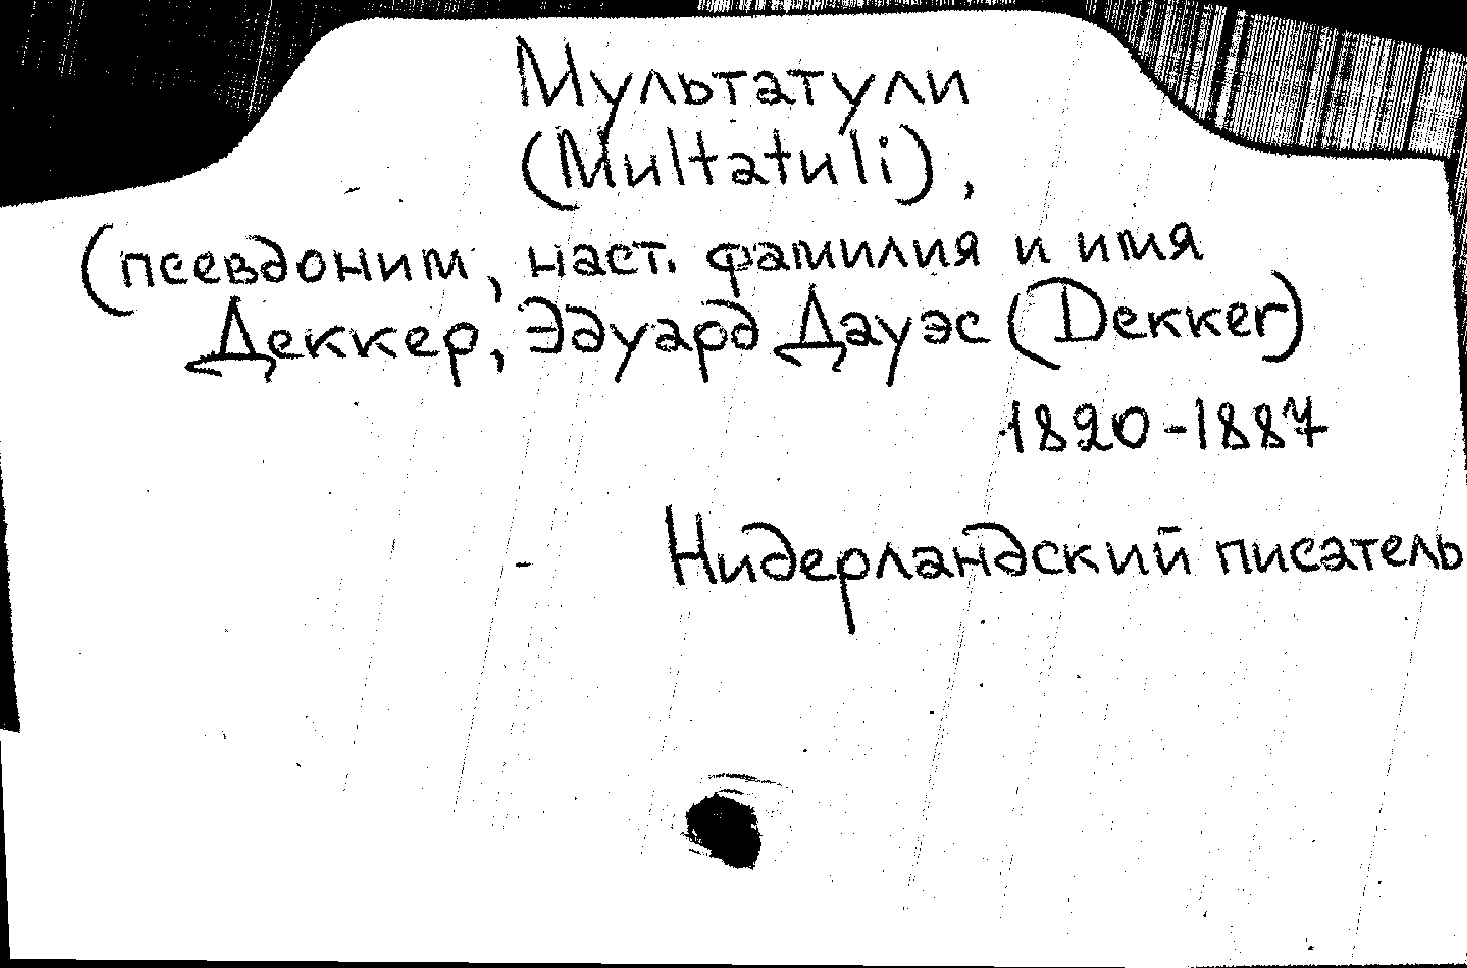 Мультатули
(Multatuli),
(псевдоним, наст. фамилия и имя
Деккер, Эдуард Дауэс (Dekker)
1820-1887
- Нидерландский писатель